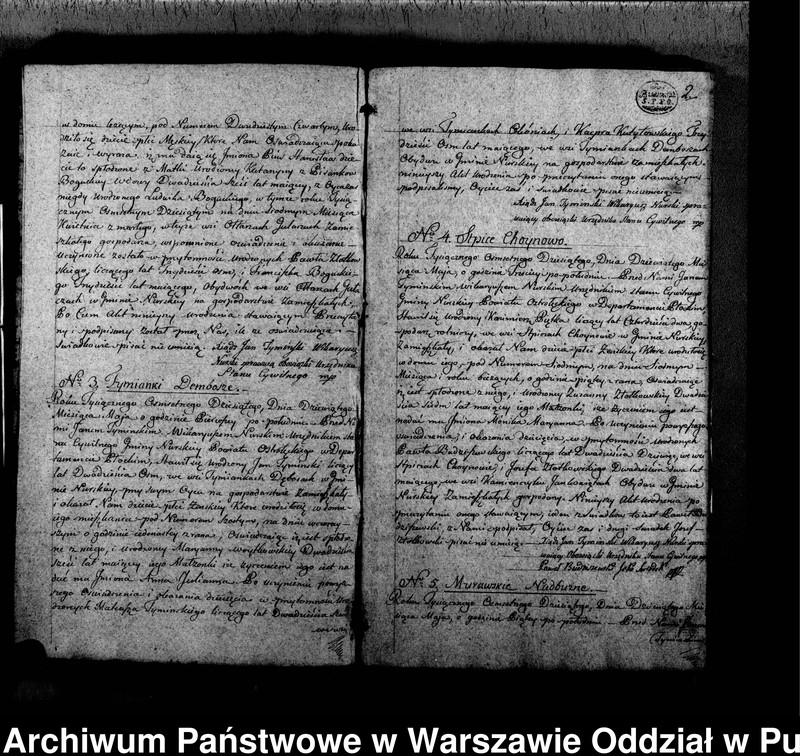 w domie leżącym, pod Numerem Dwudziestym Czwartym, Uro
dziło się dziecie płci Męskiy Które Nam Oświadczając poka
zuie, i wyraża, iż mu daią się Imiona Piuś Stanisław dzie
cie to spłodzone z Matki Urodzony Katarzyny z
Boguckiy Wdowy Dwadzieścia Sześć lat maiącey, z Oyca zas
niegdy Urodzonego Ludwika Boguckiego, w tymże roku Tysią
cznym Ośmsetnym Dziesiątym na dniu siodmym Miesiąca
Kwietnia zmarłego, w teyże wsi Ołtarzach Gołaczach Zamie
szkałego gospodarza, wspomnione oświadczenie i okazanie
uczynione zostało w przytomności Urodzonych Pawła Złotkow
skiego, liczącego lat Trzydzieści ośm, i Franciszka Boguckie
go Trzydzieści lat maiącego, Obydwoch we wsi Ołtarzach Goła
czach w Gminie Nurskiy na gospodarstwie Zamieszkałych.
Po Czem Akt ninieyszy urodzenia stawaiącym Przeczyta
ny i podpisany został przez Nas, ile że oświadczaiąca i
swiadkowie pisać nie umieią. Xiądz Jan Tyminski Wikaryusz
Nurski sprawuiący obowiązki Urzędnika
Stanu Cywilnego mp
No. 3. Tymianki Dembosze.
Roku Tysiącznego Ośmsetnego Dziesiątego, Dnia Dziewiątego
Miesiąca Maja o godzinie Pierwszy po południu. Przed Na
mi Janem Tyminskim Wikaryuszem Nurskim Urzędnikiem sta
nu Cywilnego Gminy Nurskiy Powiatu Ostrołęckiego w Depar
tamencie Płockim, Stawił się Urodzony Jan Tyminski liczący
lat Dwadzieścia Ośm, we wsi Tymiankach Dęboszach w Gmi
nie Nurskiy, przy swym Oycu na gospodarstwie Zamieszkały
i okazał Nam dziecie płci Żeńskiy Które urodziło się w domu
iego mieszkania pod Numerem Szostym, na dniu wczoray
szym o godzinie iedenastey z rana, Oświadczaiąc iż iest spłodzo
ne z niego, i Urodzony Maryanny Dwadzieścia
sześć lat maiący iego Małżonki iż życzeniem iego iest na
dać mu Imiona Anna Julianna. Po uczynieniu powyż
szego Oświadczenia i okazania dziecięcia w przytomności Uro
dzonych Mateusza Tyminskiego liczącego lat Dwadzieścia
we wsi Tymiankach i Kacpra Trzy
dzieści Ośm lat maiącego, we wsi Tymiankach Dęmboszach
Obydwa w Gminie Nurskiy na gospodarstwie Zamieszkałych
ninieyszy Akt Urodzenia po przeczytaniu onego stawaiącym
podpisaliśmy, Oyciec zas i świadkowie pisać nieumieią
Xiądz Jan Tyminski Wikaryusz Nurski spra
wuiący obowiązki Urzędnika Stanu Cywilnego mp
No. 4. Stpice Choynowo.
Roku Tysiącznego Ośmsetnego Dziesiątego, Dnia Dziewiątego Mie
siąca Maja, o godzinie Trzeciey po południu. Przed Nami Janem
Tyminskim Wikaryuszem Nurskim Urzędnikiem stanu Cywilnego
Gminy Nurskiy Powiatu Ostrołęckiego w Departamencie Płockim,
Stawił się Urodzony Kazimierz liczący lat Czterdzieści dwa go
spodarz rolniczy, we wsi Stpicach Choynowie w Gminie Nurskiy
Zamieszkały, i okazał Nam dziecie płci Żeńskiy Które urodziło się
w domu iego, pod Numerem Siodmym, na dniu Siodmym
Miesiąca i roku bieżących, o godzinie piątey z rana, Oświadczaiąc
iż iest spłodzone z niego, i Urodzony Zuzanny Złotkowskiy Dwadzie
ścia Siedm lat maiący iego Małżonki, iż życzeniem iego iest
nadać mu Imiona Monika Maryanna. Po uczynieniu powyższego
oświadczenia, i okazania dziecięcia w przytomności Urodzonych
Pawła liczącego lat Dwadzieścia Dziewięć, we wsi
Stpicach Choynowie, i Józefa Złotkowskiego Dwadzieścia dwa lat
maiącego, we wsi Kamieńczyku Obydwa w Gminie
Nurskiy Zamieszkałych gospodarzy, Ninieyszy Akt Urodzenia po
przeczytaniu onego stawaiącym, ieden z świadków to iest Paweł
z Nami podpisał, Oyciec zas i drugi świadek Józef
Złotkowski pisać nie umieią. Xiądz Jan Tyminski Wikaryusz Nurski spra
wuiący Obowiązki Urzędnika Stanu Cywilnego mp
Paweł Jako świadek
No. 5. Murawskie Nadbużne.
Roku Tysiącznego Ośmsetnego Dziesiątego, Dnia Dziewiątego Mie
siąca Maja, o godzinie Piątey po południu. Przed Nami Janem
Tyminskim
2
Archiwum Państwowe w Warszawie Oddział w Pu